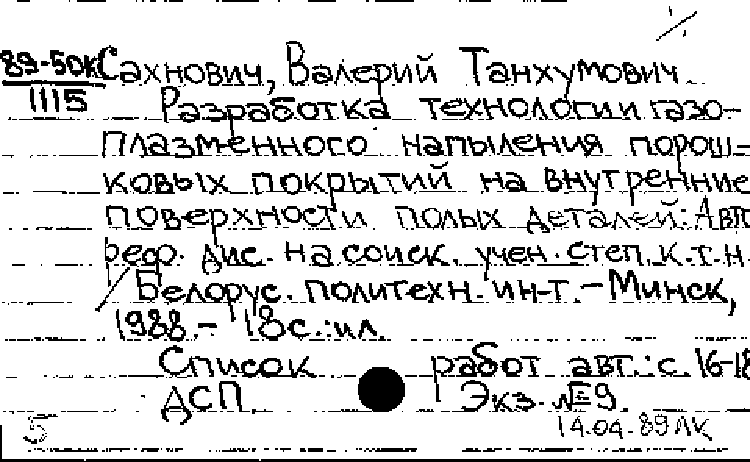 89-50К Сахнович, Валерий Танхумович.
1115 Разработка технологии газо-
плазменного напыления порош-
ковых покрытий на внутренние
поверхности полых деталей: Авто
реф. дис. на соиск. учен. степ. к.т.н.
Белорус. политехн. ин-т. - Минск,
1988. - 18 с.: ил.
Список работ авт.: с. 16-18
ДСП Экз. №9.
5 14.04.89 ЛК